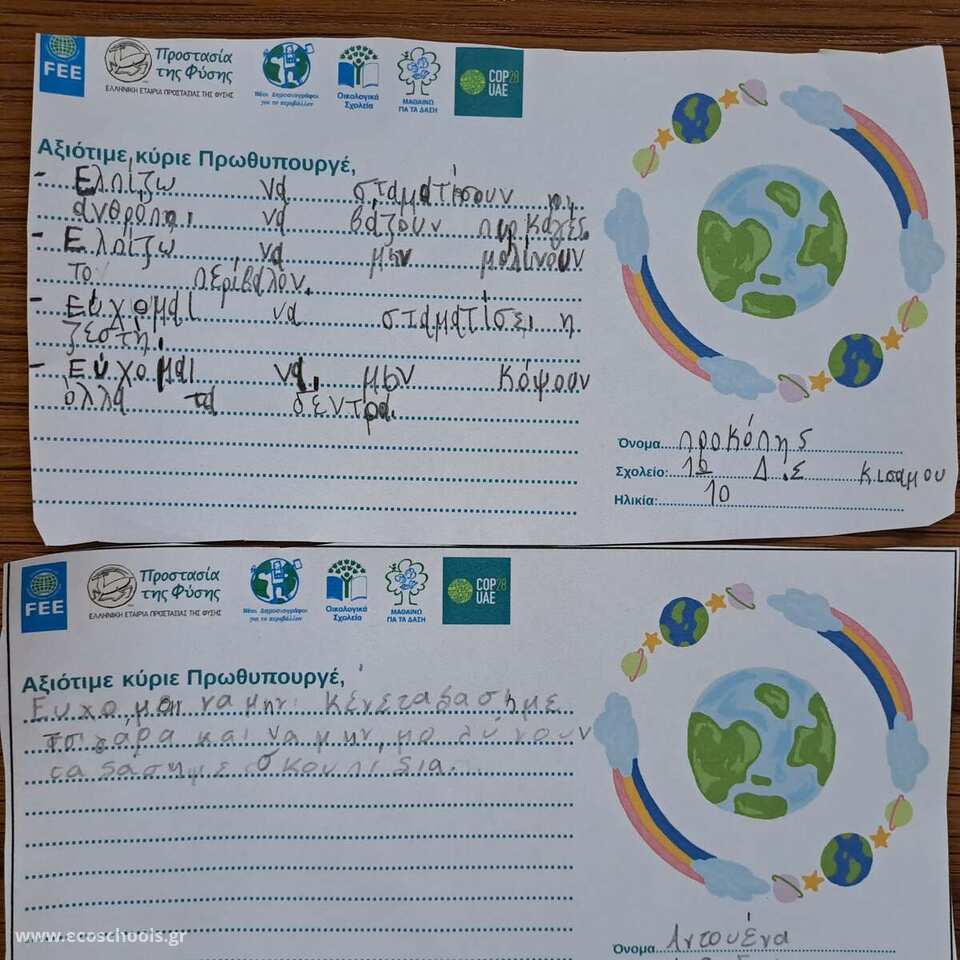 FEE
Προστασία
της Φύσης
ΕΛΛΗΝΙΚΗ ΕΤΑΙΡΙΑ ΠΡΟΣΤΑΣΙΑΣ ΤΗΣ ΦΥΣΗΣ
Νέοι Δημοσιογράφοι
για το περιβάλλον
Οικολογικά
Σχολεία
ΜΑΘΑΙΝΩ
ΓΙΑ ΤΑ ΔΑΣΗ
COP28
UAE
Αξιότιμε κύριε Πρωθυπουργέ,
- Ελπίζω να σταματίσουν η
άνθρόπη να βάζουν πιρκαγές.
- Ελπίζω να μην μολίνουν
το περίβαλον.
- Εύχομαι να σταματίσει η
ζέστη.
- Εύχομαι να μην κόψουν
άλλα τα δέντρα.
Όνομα προκόπης
Σχολείο: 1ο Δ.Σ Κισαμου
Ηλικία: 10
FEE
Προστασία
της Φύσης
ΕΛΛΗΝΙΚΗ ΕΤΑΙΡΙΑ ΠΡΟΣΤΑΣΙΑΣ ΤΗΣ ΦΥΣΗΣ
Νέοι Δημοσιογράφοι
για το περιβάλλον
Οικολογικά
Σχολεία
ΜΑΘΑΙΝΩ
ΓΙΑ ΤΑ ΔΑΣΗ
COP28
UAE
Αξιότιμε κύριε Πρωθυπουργέ,
Ευχομαι να μην κένε τα δαση με
τσιγάρα και να μην μολύνουν
τα δαση με σκουπίδια.
Όνομα Αντουένα
www.ecoschools.gr